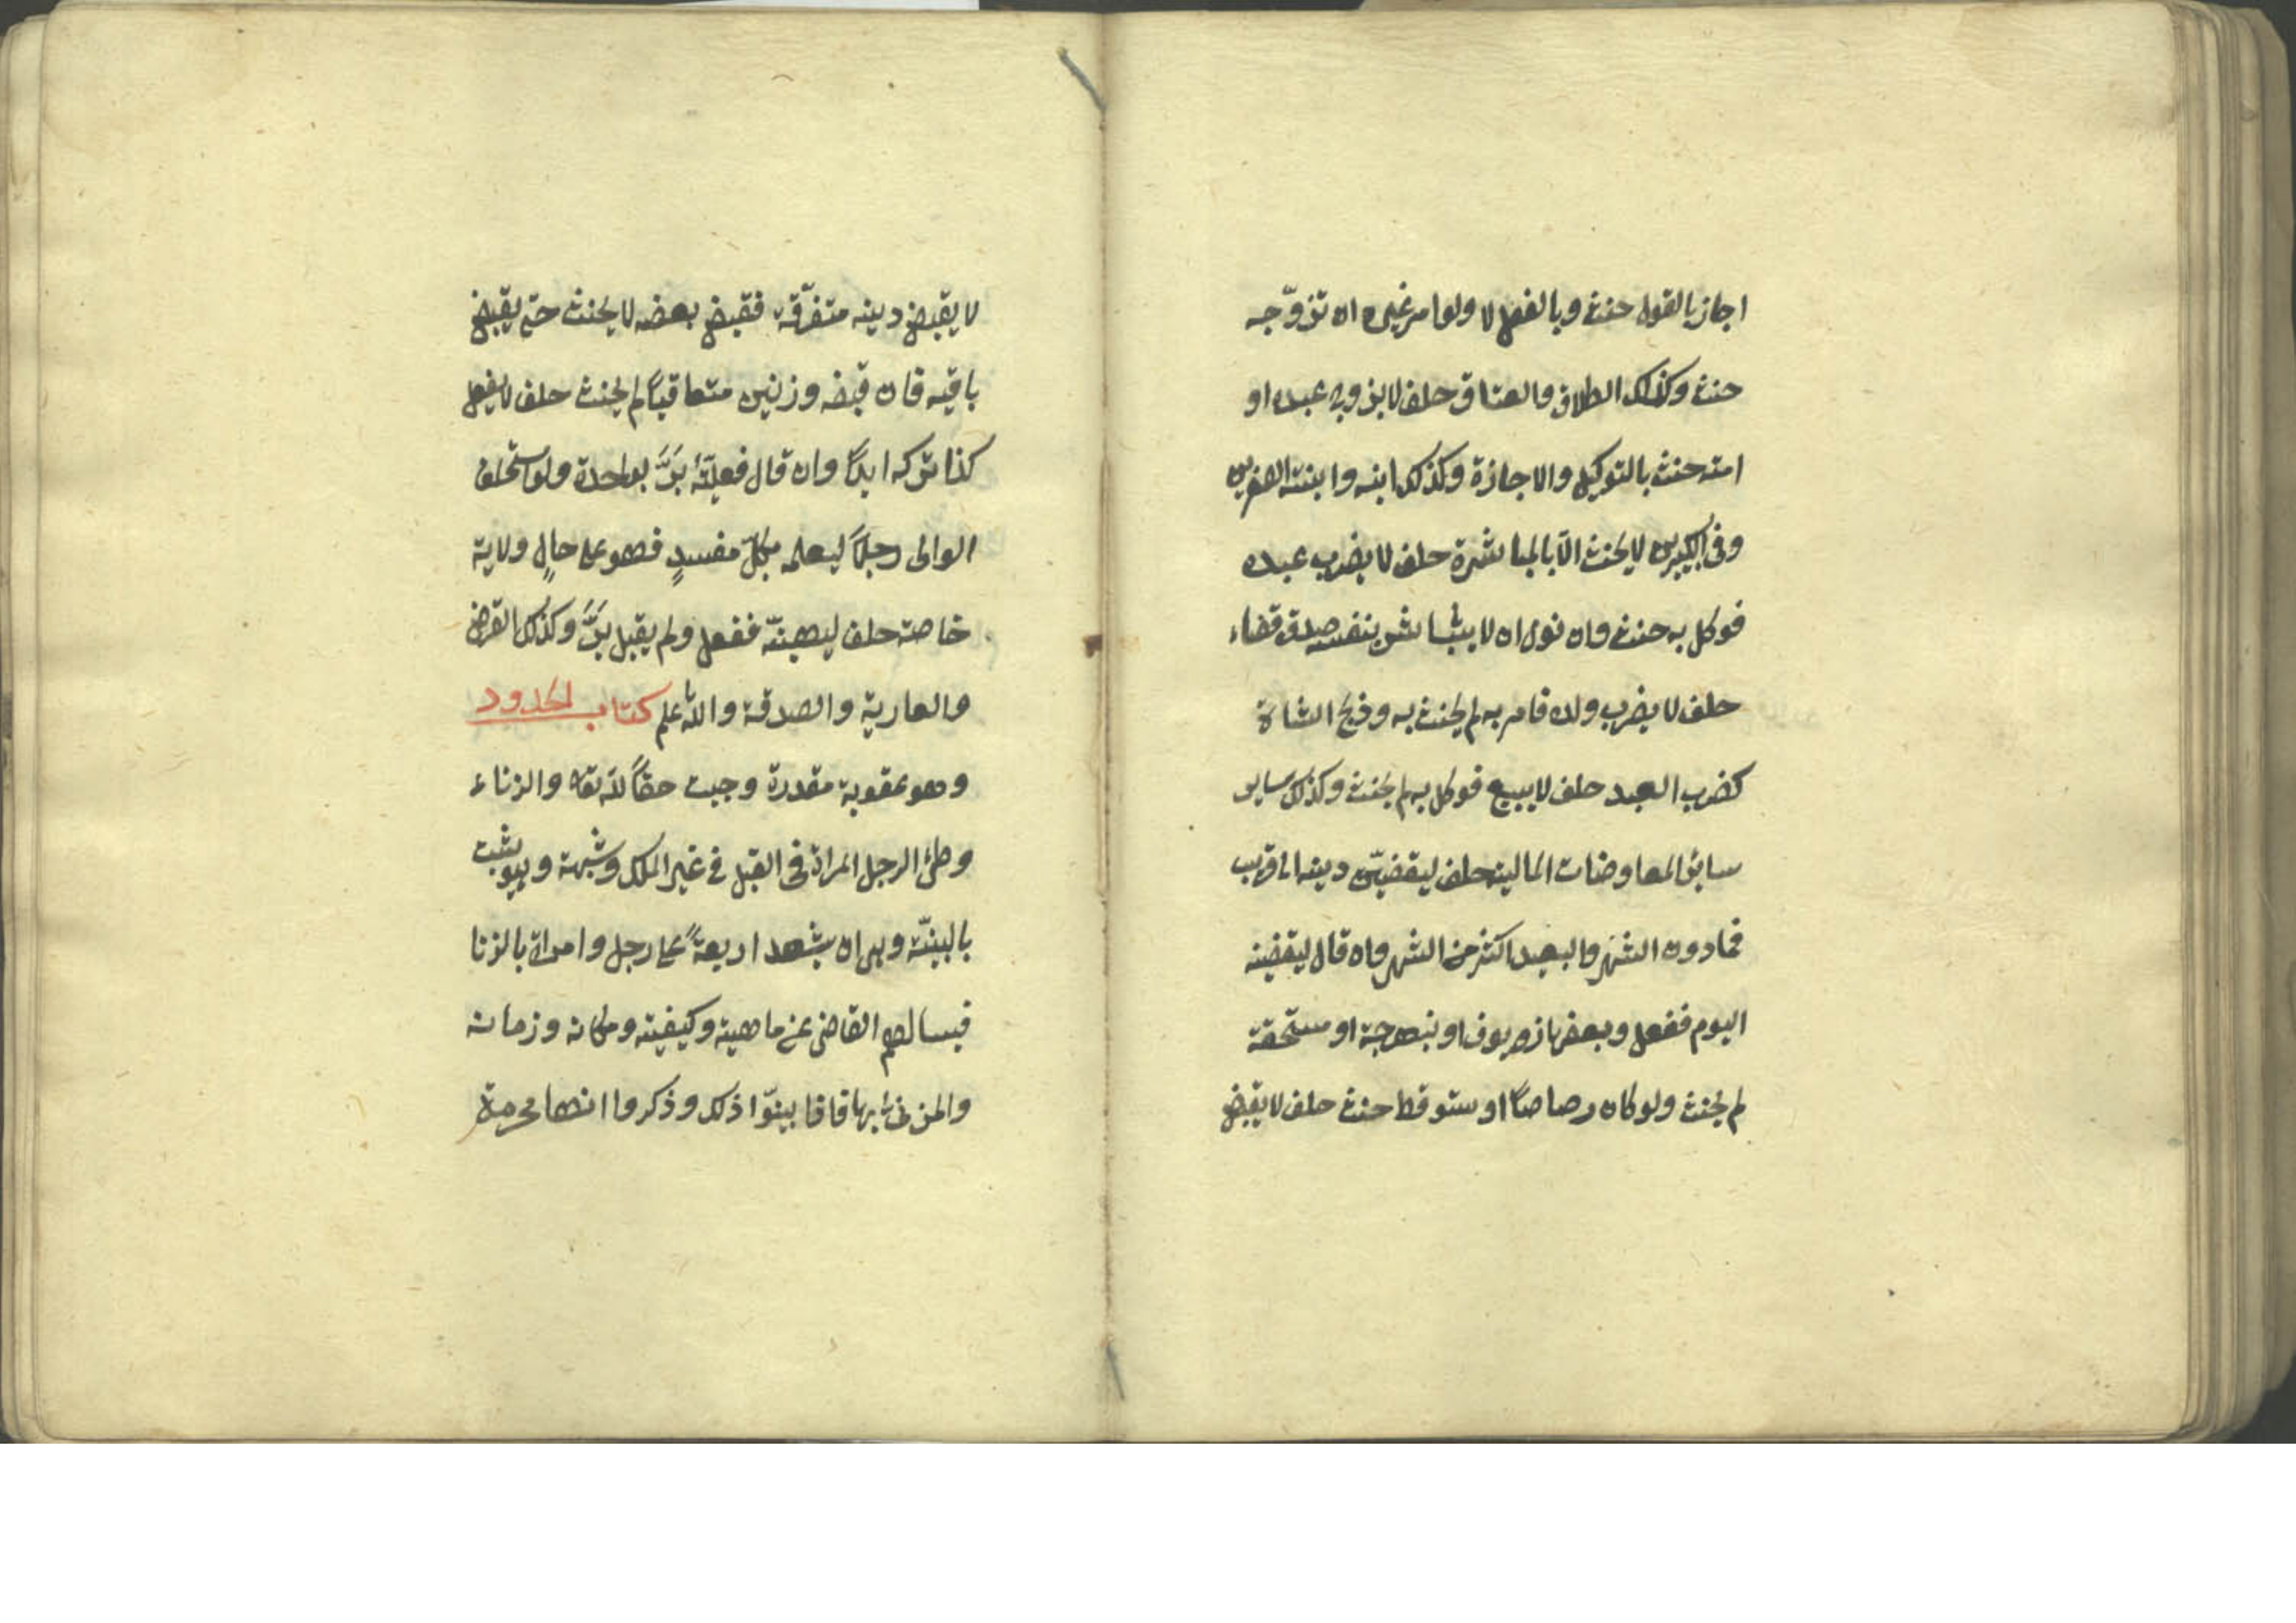 اجاز بالقول حنث وبالفعل لا ولو امر غيره ان تزوّجه
حنث وكذلك الطلاق والعتاق حلف لا يزوج عبده او
امته حنث بالتوكيل والاجازة وكذلك ابنه وابنته الصغيرين
وفى الكبيرين لا يحنث الّا بالمباشرة حلف لا يضرب عبده
فوكل به حنث وان نوى ان لا يباشر بنفسه صدق قضاء
حلف لا يضرب ولده فامر به لم يحنث به وذبح الشاة
كضرب العبد حلف لا يبيع فوكل به لم يحنث وكذلك ساير
سائر المعاوضات المالية حلف ليقضينّ دينه الى قريب
فمادون الشهر والبعيد اكثر من الشهر وان قال ليقضينه
اليوم ففعل وبعضها زيوف او بنهرجة او مستحقة
لم يحنث ولو كان رصاصًا او ستوقة حنث حلف لا يقبض
لا يقبض دينه متفرّقة فقبض بعضه لا يحنث حتى يقبض
باقيه فان قبضه وزنين متعاقبًا لم يحنث حلف لا يفعل
كذا تركه ابدًا وان قال فعلنّه بَرَّ بواحدة ولو استحلف
الوالى رجلًا ليعلمه بكلّ مفسدٍ فهو على حالٍ ولاية
خاصة حلف ليهبنّه ففعل ولم يقبل بَرَّ وكذلك القرض
والعارية والصدقة والله اعلم كتاب الحدود
وهو عقوبة مقدرة وجبت حقًا لله تعه والزناء
وطئ الرجل المراة فى القبل فى غير الملك وشبهة ويثبت
بالبينّة وهى ان يشهد اربعةً على رجل وامراة بالزنا
فيسالهم القاضى عن ماهيته وكيفيته ومكانه وزمانه
والمزنى بها فاذا بينوّا ذلك وذكروا انها محرمة